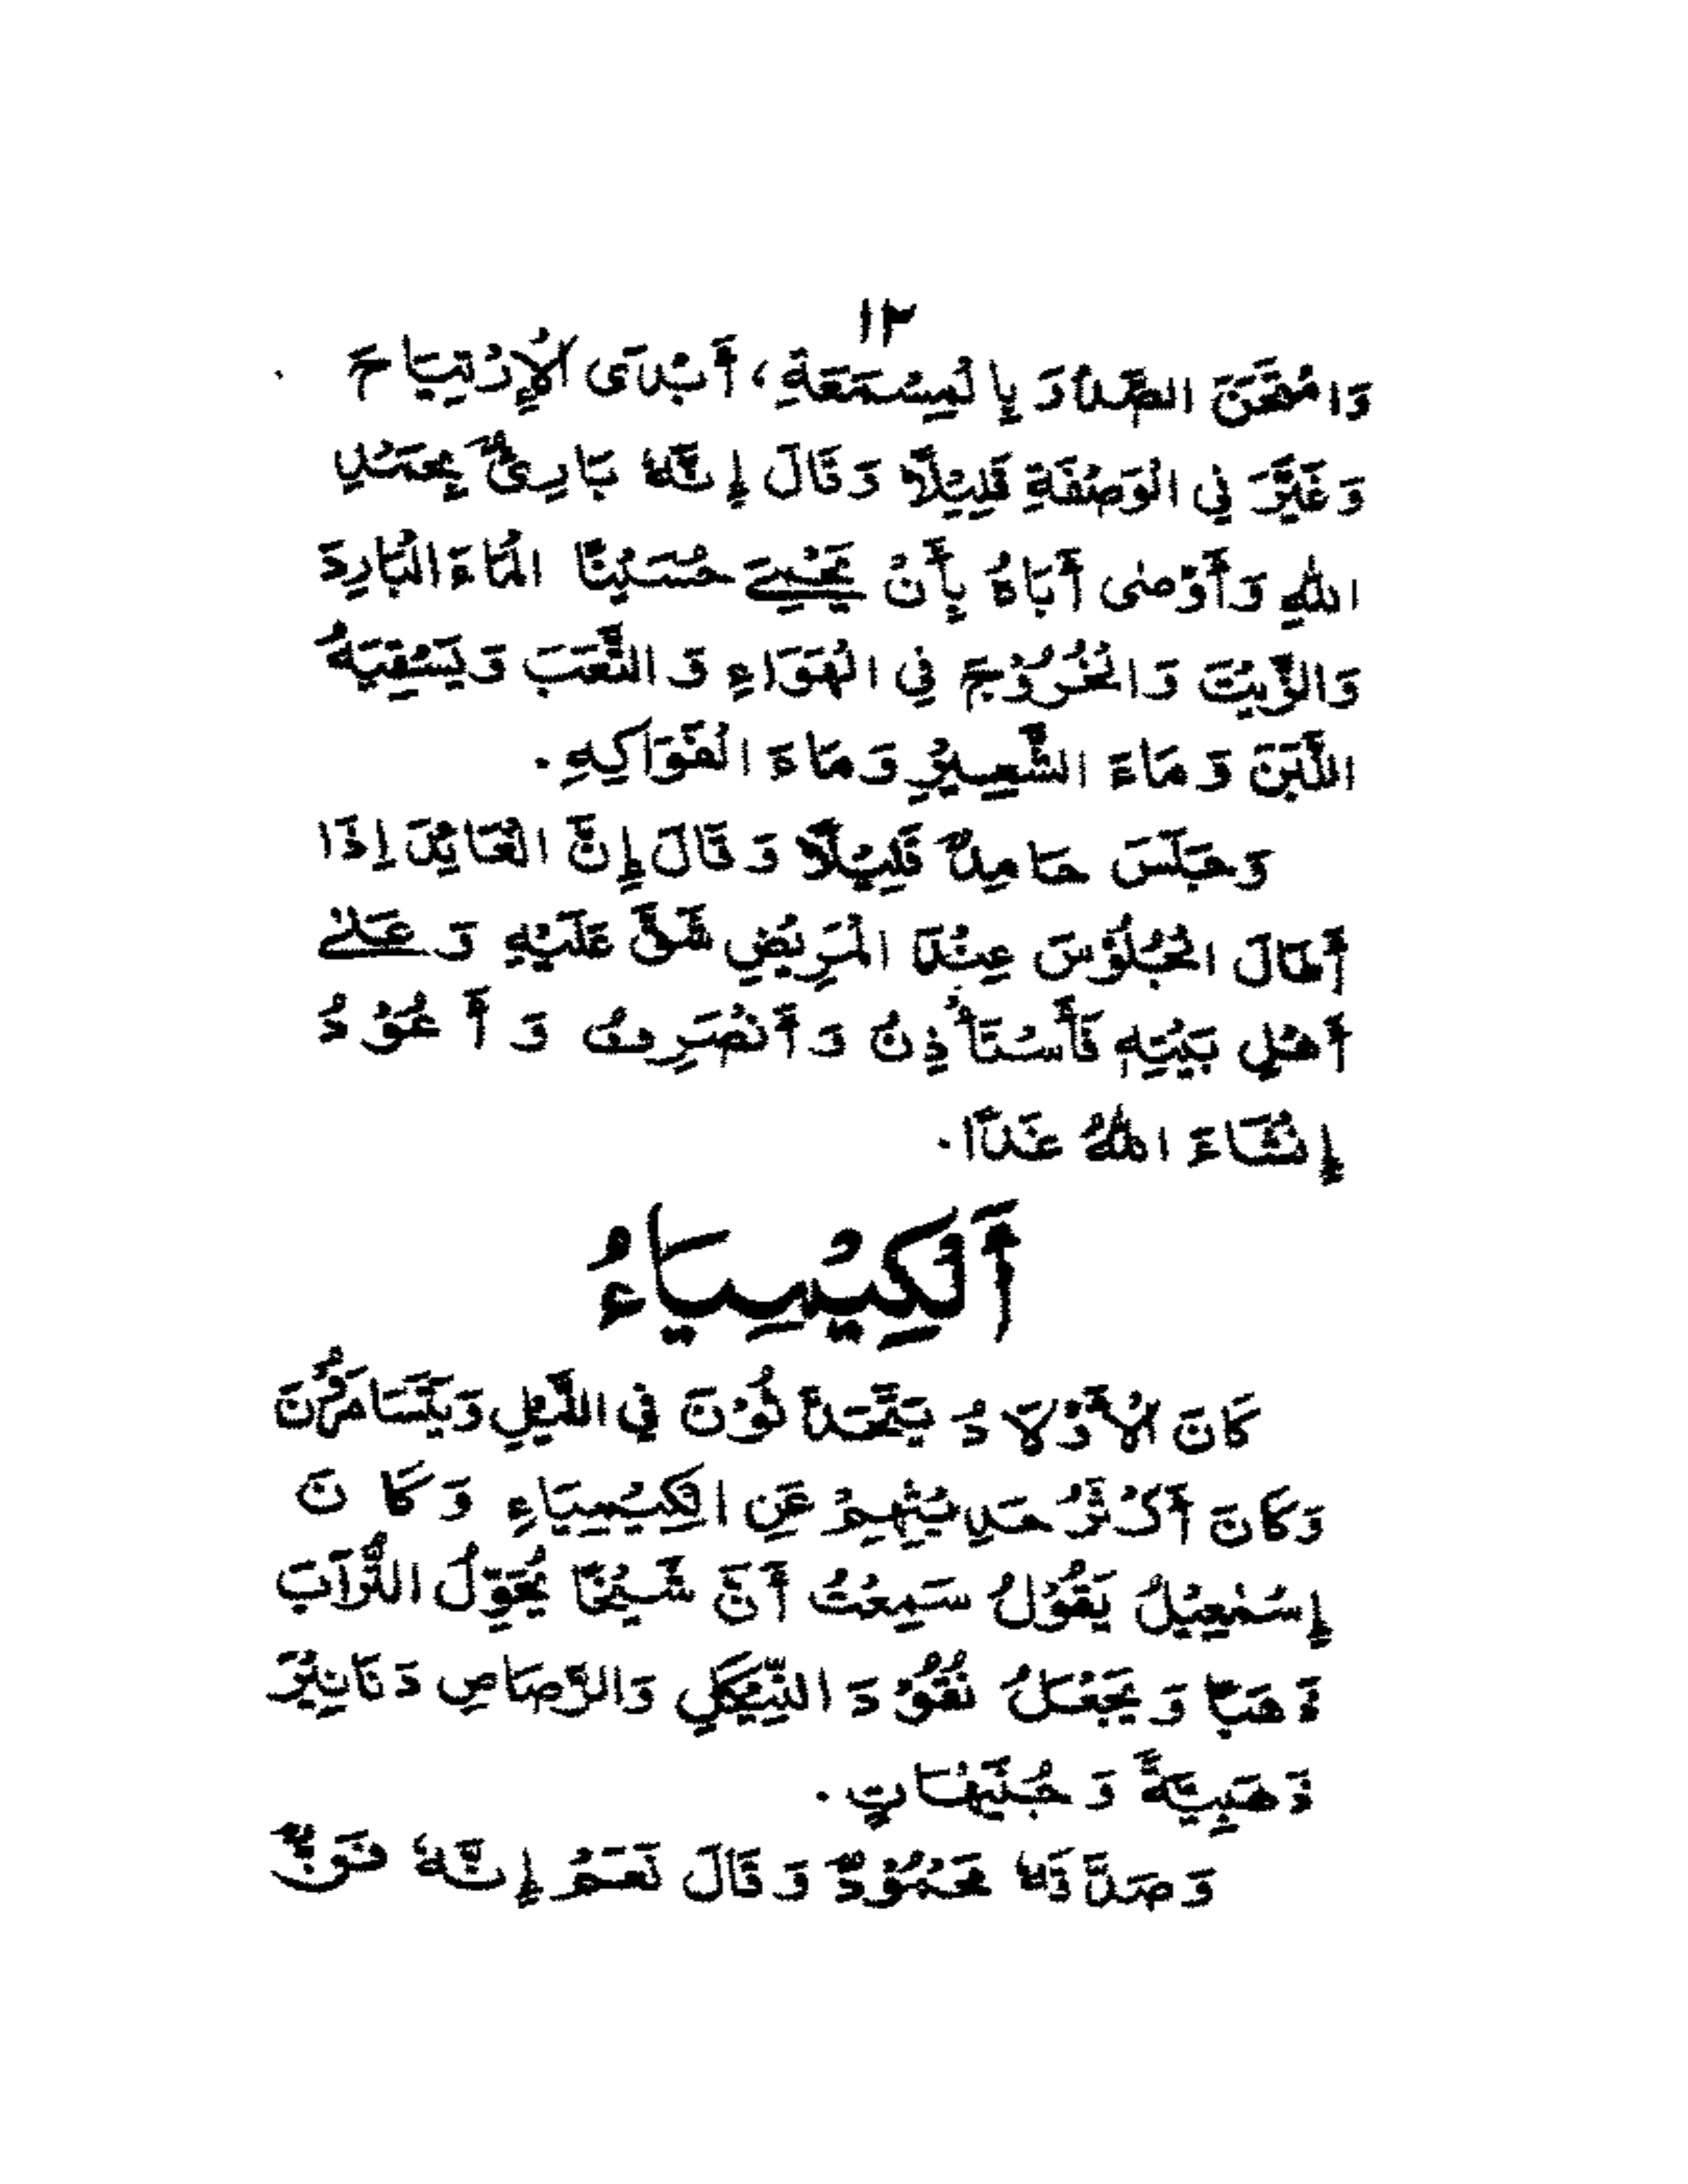 ١٢
وَامْتَحَنَ الصَّدْرَ بِالْمِسْمَعَةِ، أَبْدَى الْإِرْتِيَاحَ
وَغَيَّرَ فِي الْوَصْفَةِ قَلِيْلًا وَقَالَ إِنَّهُ بَارِئٌ بِحَمْدِ
اللهِ وَأَوْصٰى أَبَاهُ بِأَنْ يَحْمِيَ حُسَيْنًا الْمَاءَ الْبَارِدَ
وَالزَّيْتَ وَالْخُرُوْجَ فِي الْهَوَاءِ وَالتَّعَبَ وَيَسْقِيَهُ
اللَّبَنَ وَمَاءَ الشَّعِيْرِ وَمَاءَ الْفَوَاكِهِ.
وَجَلَسَ حَامِدٌ قَلِيْلًا وَقَالَ إِنَّ الْعَائِدَ إِذَا
أَطَالَ الْجُلُوْسَ عِنْدَ الْمَرِيْضِ شَقَّ عَلَيْهِ وَعَلٰى
أَهْلِ بَيْتِهِ فَأَسْتَأْذِنُ وَأَنْصَرِفُ وَأَعُوْدُ
إِنْشَاءَ اللهُ غَدًا.
أَلْكِيْمِيَاءُ
كَانَ الْأَوْلَادُ يَتَحَدَّثُوْنَ فِي اللَّيْلِ وَيَتَسَامَرُوْنَ
وَكَانَ أَكْثَرُ حَدِيْثِهِمْ عَنِ الْكِيْمِيَاءِ وَكَانَ
إِسْمٰعِيْلُ يَقُوْلُ سَمِعْتُ أَنَّ شَيْخًا يُحَوِّلُ التُّرَابَ
ذَهَبًا وَيَجْعَلُ نُقُوْدَ النِّيْكَلِ وَالرَّصَاصِ دَنَانِيْرَ
ذَهَبِيَّةً وَجُنَيْهَاتٍ.
وَصَدَّقَهُ مَحْمُوْدٌ وَقَالَ نَعَمْ إِنَّهُ فَنٌّ